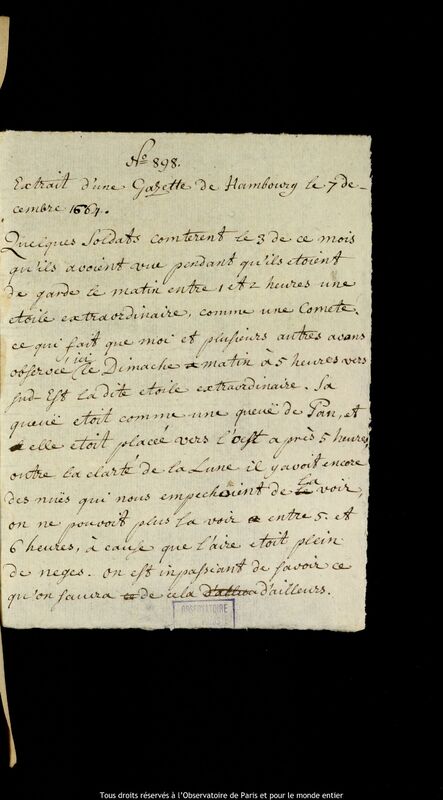 No 898.
Extrait d'une Gazette de Hambourg le 7 de-
cembre 1664.
Quelques Soldats comterent le 3 de ce mois
qu'ils avoient vue pendant qu'ils etoient
de garde le matin entre 1 et 2 heures une
etoile extraordinaire, comme une Comete.
ce qui fait que moi et plusieurs autres avons
observée ici le Dimache matin à 5 heures vers
sud-Est la dite etoile extraordinaire. Sa
queuë etoit comme une queuë de Pan, et
elle etoit placeé vers l'oest après 5 heures,
outre la clarté de la Lune il y avoit encore
des nuës qui nous empechoient de la voir,
on ne pouvoit plus la voir entre 5. et
6 heures, à cause que l'aire etoit plein
de neges. on est inpassiant de savoir ce
qu'on saura de cela d'ailleurs.
OBSERVATOIRE
Tous droits réservés à l'Observatoire de Paris et pour le monde entier